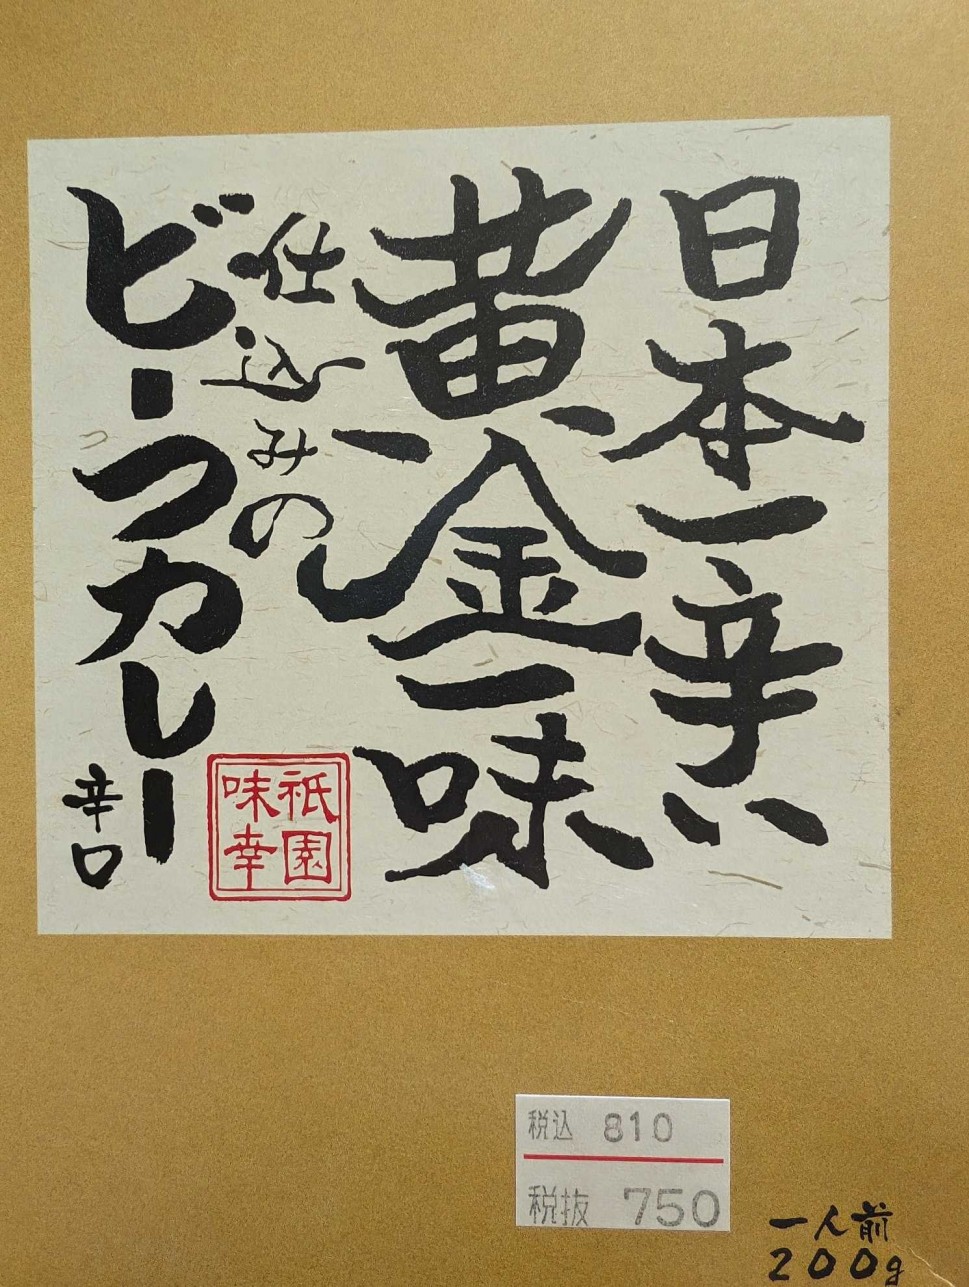 日本一辛い
黄金一味
仕込みの
ビーフカレー
辛口
祇園
味幸
税込 810
税抜 750
一人前
200g